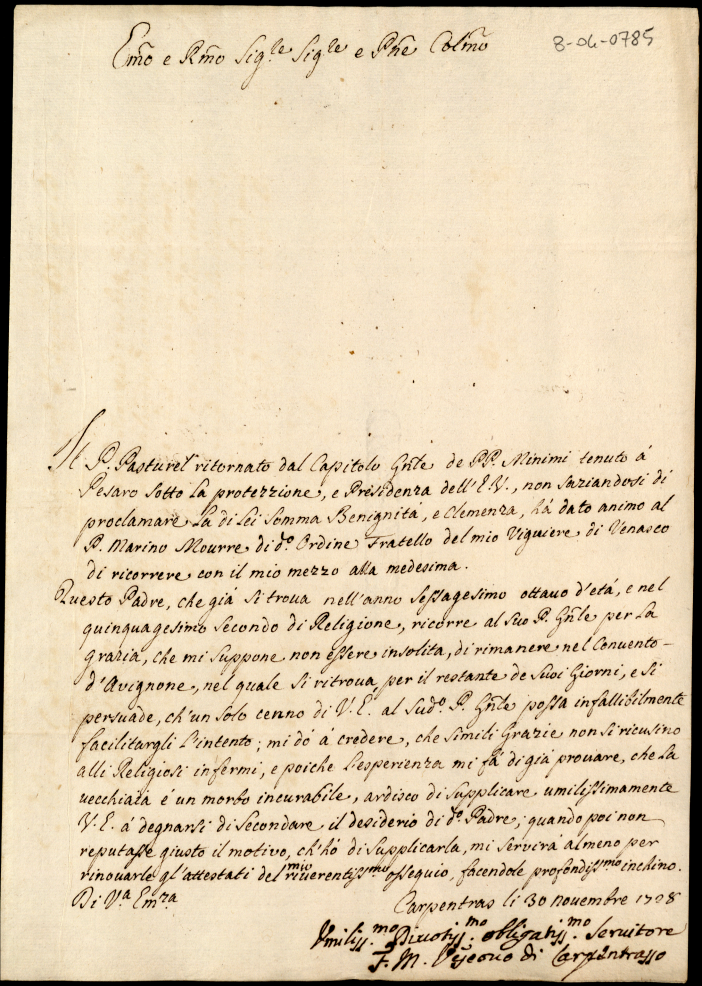 8-04-0785
Em̃o e Rm̃o Sig.re Sig.re e Pñe Colm̃o
Il P. Pasturel ritornato dal Capitolo Gñle de PP. Minimi tenuto á
Pesaro sotto la protezzione, e Presidenza dell'E.V., non saziandosi di
proclamare la di lei somma Benignitá, e Clemenza, há dato animo al
P. Marino Mourre di d.o Ordine Fratello del mio Viguiere di Venasco
di ricorrere con il mio mezzo alla medesima.
Questo Padre, che giá si troua nell'anno sessagesimo ottauo d'etá, e nel
quinquagesimo secondo di Religione, ricorre al suo P. Gñle per la
grazia, che mi suppone non essere insolita, di rimanere nel Conuento
d'Avignone, nel quale si ritroua per il restante de suoi Giorni, e si
persuade, ch'un solo cenno di V.E. al sud.o P. Gñle possa infallibilmente
facilitargli l'intento; mi dó á credere, che simili Grazie non si ricusino
alli Religiosi infermi, e poiche l'esperienza mi fá di giá prouare, che la
uecchiaia é un morbo incurabile, ardisco di supplicare umilissimamente
V.E. á degnarsi di secondare il desiderio di d.o Padre; quando poi non
reputasse giusto il motivo, ch'hó di supplicarla, mi seruirá almeno per
rinouarle gl'attestati del mio riuerentiss.mo ossequio, facendole profondiss.mo inchino.
Di V.a Em.za
Carpentras li 30 Novembre 1728
Vmiliss.mo Diuotiss.mo obligatiss.mo Seruitore
F. M. Vescouo di Carpentrasso